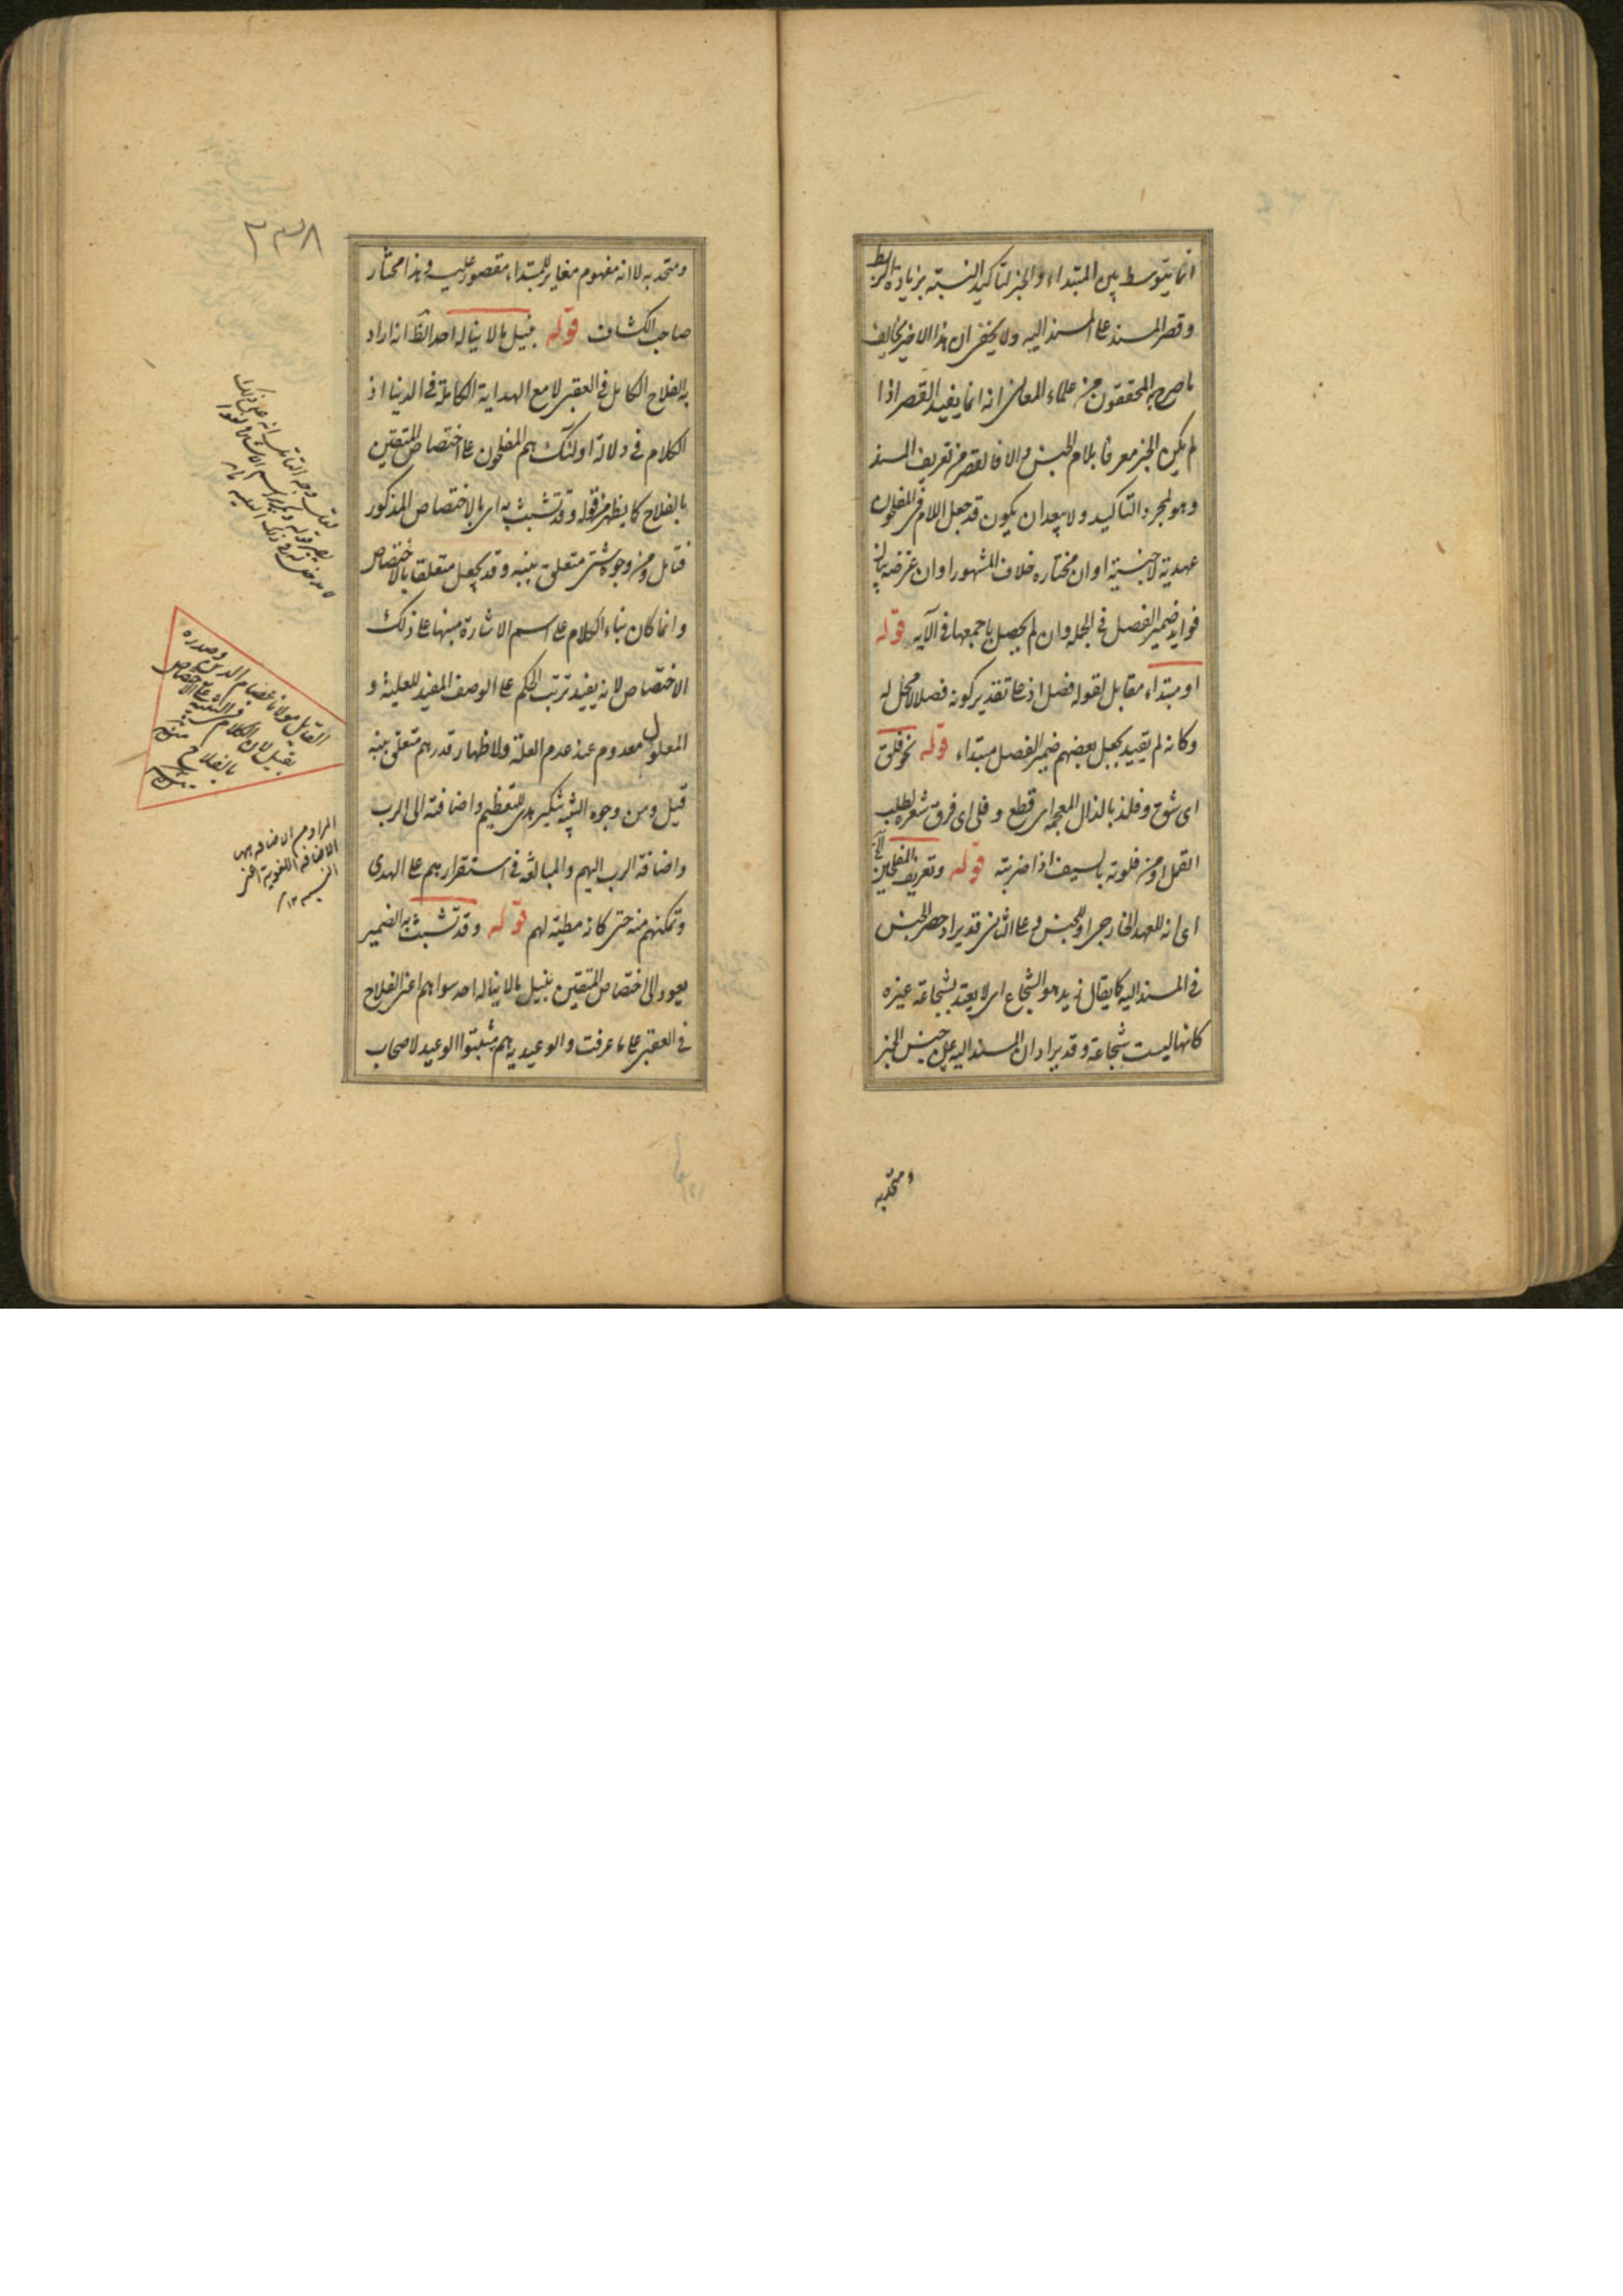 انما يتوسط بين المبتداء والخبر لتاكيد النسبة بزيادة الربط
وقصر المسند على المسند اليه ولا يخفى ان هذا الاخير يخالف
ما صرح به المحققون من علماء المعانى انه انما يفيد القصر اذا
لم يكن الخبر معرفا بلام الجنس والا فالقصر من تعريف المسند
وهو لمجرد التاكيد ولا يبعد ان يكون قد جعل اللام فى المفلحون
عهدية لا جنسية او ان مختاره خلاف المشهور او ان غرضه بيان
فوايد ضمير الفصل فى الجملة وان لم يحصل باجمعها فى الآيه قوله
او مبتداء مقابل لقوله فصل اذ على تقدير كونه فصلا لا محل له
وكانه لم يعتد بجعل بعضهم ضمير الفصل مبتداء قوله نحو فلق
اى شق وفلذ بالذال المعجمة اى قطع وفلى اى فرق شعره لطلب
القمل او من فلوته بالسيف اذا ضربته قوله وتعريف المفلحين الخ
اى انه للعهد الخارجى او للجنس وعلى الثانى قد يراد حصر الجنس
فى المسند اليه كما يقال زيد هو الشجاع اى لا يعتد بشجاعة غيره
كانها ليست شجاعة وقد يراد ان المسند اليه عين جنس الخبر
ومتحد به
٢٣٨
ومتحد به لا انه مفهوم مغاير للمبتداء مقصور عليه وهذا مختار
صاحب الكشاف قوله بنيل ما لا يناله احد الظ انه اراد
به الفلاح الكامل فى العقبى لا مع الهداية الكاملة فى الدنيا اذ
الكلام فى دلالة اولئك هم المفلحون على اختصاص المتقين
بالفلاح كما يظهر من قوله وقد تشبث به اى بالاختصاص المذكور
فتامل ومن وجوه شتى متعلق بنبه وقد يجعل متعلقا بالاختصاص
وانما كان بناء الكلام على اسم الاشارة منبها على ذلك
الاختصاص لانه يفيد ترتب الحكم على الوصف المفيد للعلية و
المعلول معدوم عند عدم العلة ولاظهار قدرهم متعلق بنبه
قيل ومن وجوه التنبيه تنكير هدى للتعظيم واضافته الى الرب
واضافة الرب اليهم والمبالغة فى استقرارهم على الهدى
وتمكنهم منه حتى كانه مطية لهم قوله وقد تشبث به الضمير
يعود الى اختصاص المتقين بنيل ما لا يناله احد سواهم اعنى الفلاح
فى العقبى على ما عرفت والوعيدية هم مثبتوا الوعيد لاصحاب
القائل مولانا عصام الدين وصدره
بقيل لان الكلام فى التنبيه على الاختصاص
بالفلاح
المراد من الاضافه ههنا
الاضافة اللغوية اعنى
النسبه ١٢